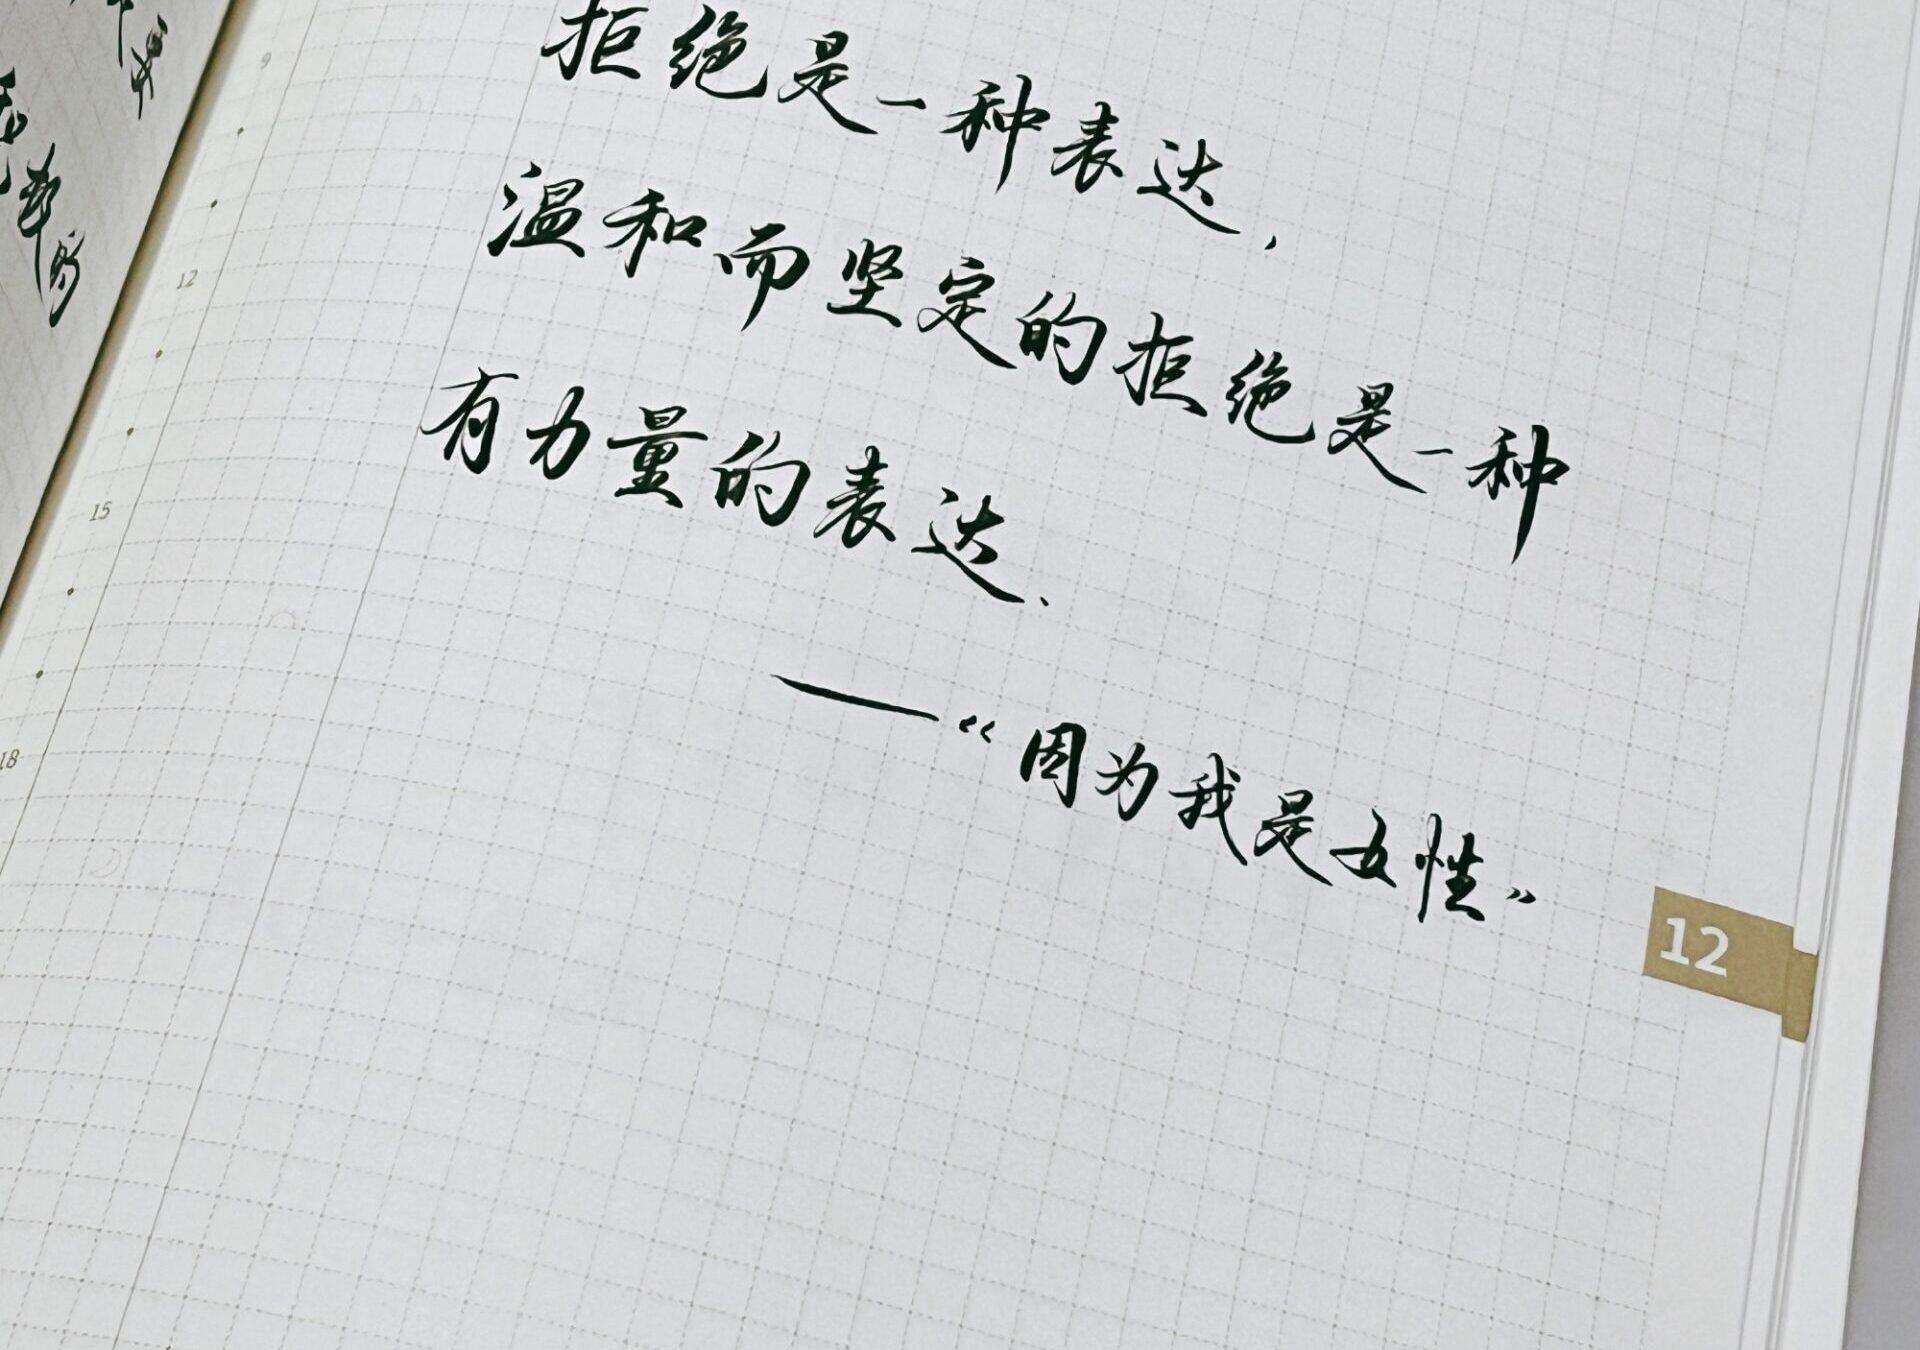 拒绝是一种表达，
温和而坚定的拒绝是一种
有力量的表达、
——《因为我是女性》
9
12
15
18
12